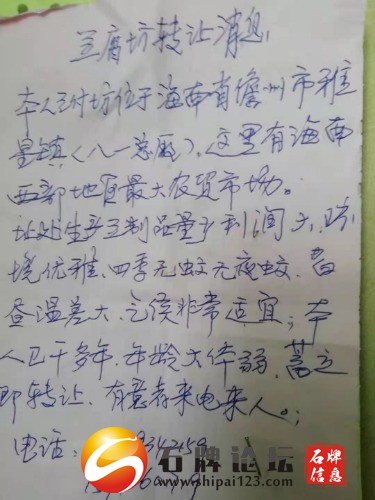 豆腐坊转让消息
本人豆付坊位于海南省儋州市雅
星镇(八一总厂),这里有海南
西部地区最大农贸市场。
此处生产豆制品量多利润大,环
境优雅,四季无蚊无夜蚊,昼
温差大,气侯非常适宜;本
人已干多年,年龄大体弱,需立
即转让,有意者来电来人。;
电话:
石牌论坛
www.shipai123.com
石牌
信息